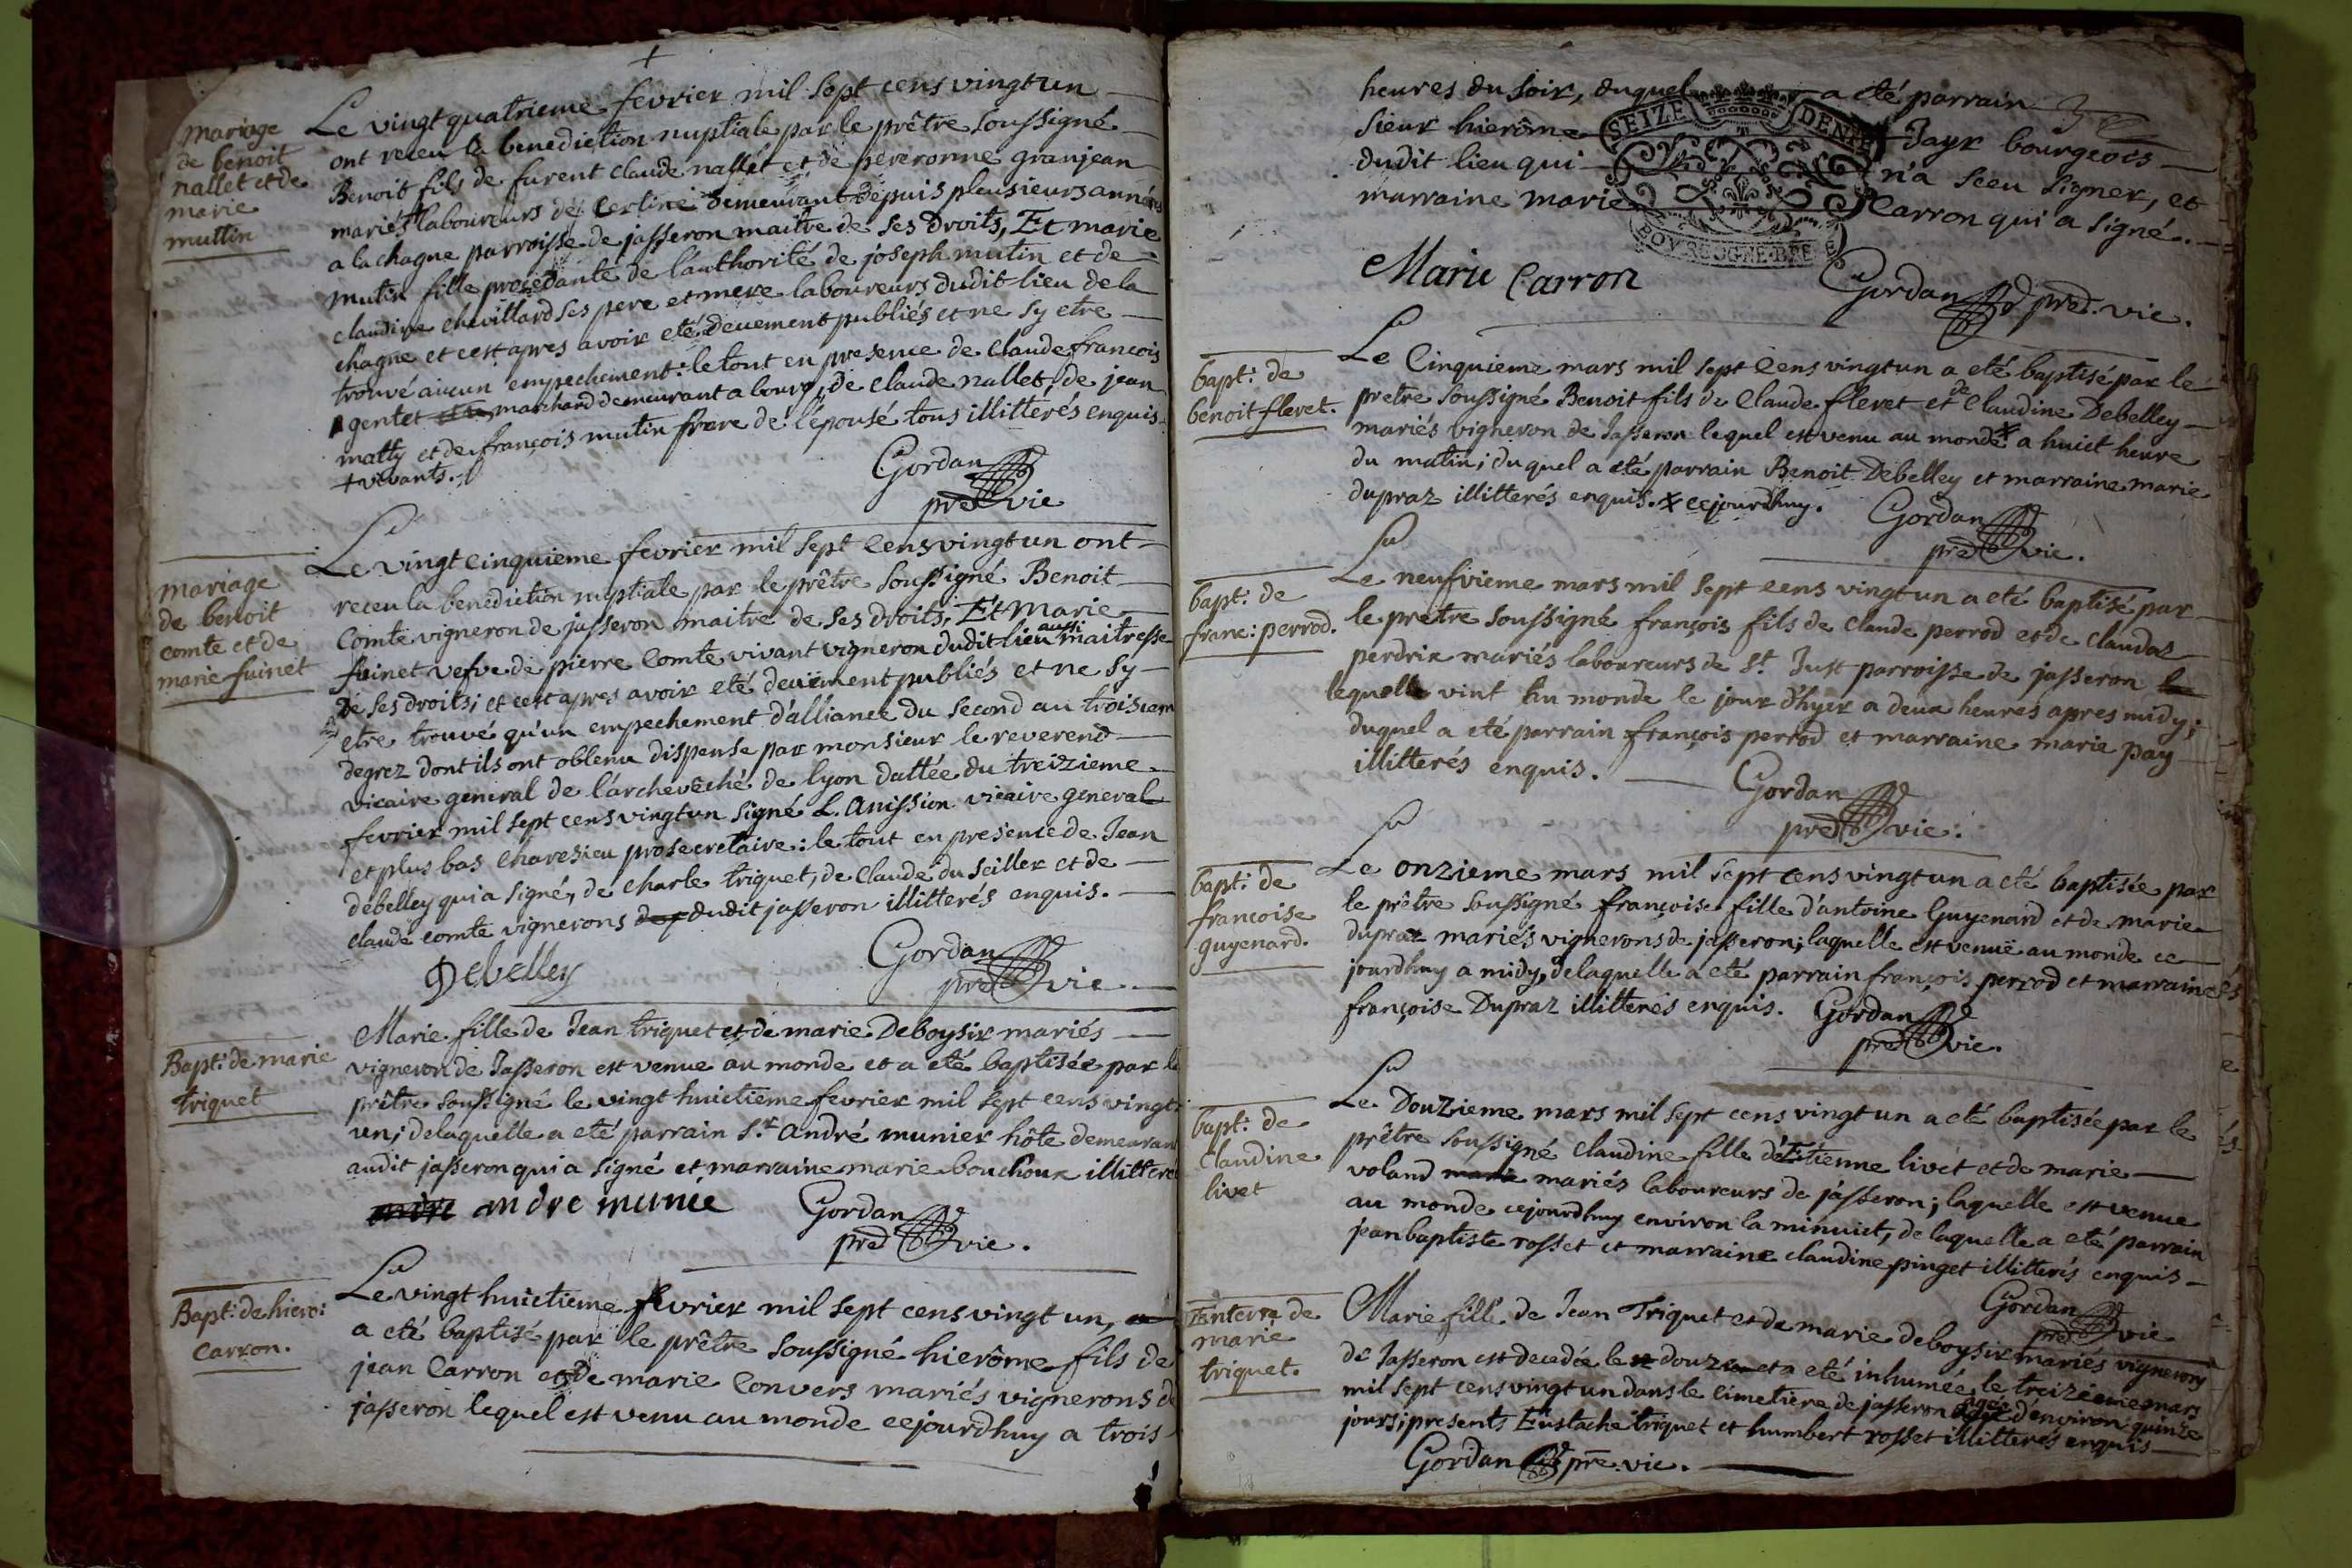 +
mariage
de benoit
nallet et de
marie
muttin
Le vingt quatrieme fevrier mil sept cens vingt un
ont receu la benediction nuptiale par le prêtre soussigné
Benoit fils de furent claude nallet et de peronne granjean
mariés laboureurs de demeurant depuis plusieurs années
a la chagne parroisse de jasseron maitre de ses droits, Et marie
mutin fille procedante de l'authorité de joseph mutin et de
claudine chevillard ses pere et mere laboureurs dudit lieu de la
chagne et c'est apres avoir eté deuement publiés et ne sy etre
trouvé aucun empechement: le tout en presence de claude francois
gentet marchand demeurant a bourg, de claude nallet, de jean
matty et de françois mutin frere de l'épousé tous illitterés enquis.
+ vivants.
Gordan
pre vic
mariage
de benoit
comte et de
marie fuinet
Le vingt cinquieme fevrier mil sept cens vingt un ont
receu la benediction nuptiale par le prêtre soussigné Benoit
Comte vigneron de jasseron maitre de ses droits, Et marie
fuinet vefve de pierre Comte vivant vigneron dudit lieu aussi maitresse
de ses droits; et c'est apres avoir eté deuëment publiés et ne sy
etre trouvé qu'un empechement d'alliance du second au troisiem
degrez dont ils ont obtenu dispense par monsieur le reverend
vicaire general de l'archevêché de lyon dattée du treizieme
fevrier mil sept cens vingt un signé L. Anission vicaire general
et plus bas Charesieu prosecretaire: le tout en presence de Jean
debelley qui a signé, de charle triquet, de claude du seiller et de
claude comte vignerons dudit jasseron illitterés enquis.
Debelley
Gordan
pre vic
Bapt: de marie
triquet
Marie fille de Jean triquet et de marie Deboysir mariés
vigneron de Jasseron est venue au monde et a eté baptisée par le
prêtre soussigné le vingt huictieme fevrier mil sept cens vingt
un; delaquelle a eté parrain s.r andré munier hôte demeurant
audit jasseron qui a signé et marraine marie bouchoux illitteré
andre munié
Gordan
pre vic.
Bapt: de hiero:
carron.
Le vingt huictieme fevrier mil sept cens vingt un,
a eté baptisé par le prêtre soussigné hierôme fils de
jean Carron et de marie Convers mariés vignerons de
jasseron lequel est venu au monde cejourdhuy a trois
heures du soir, duquel a eté parrain
sieur hierôme Jayr bourgeois
dudit lieu qui n'a sceu signer, et
marraine marie Carron qui a signé.
SEIZE DENIE
BOURGOGNE-BRESSE
Marie Carron
Gordan pre. vic.
bapt: de
benoit fleret.
Le Cinquieme mars mil sept cens vingt un a eté baptisé par le
pretre soussigné Benoit fils de Claude fleret et de Claudine Debelley
mariés vigneron de Jasseron lequel est venu au monde x a huict heure
du matin; duquel a eté parrain Benoit Debelley et marraine marie
dupraz illitterés enquis. x cejourdhuy.
Gordan
pre vic.
bapt: de
franc: perrod.
Le neufvieme mars mil sept cens vingt un a eté baptisé par
le prêtre soussigné françois fils de claude perrod et de clauda
perdrix mariés laboureurs de st. Just parroisse de jasseron
lequel vint au monde le jour d'hyer a deux heures apres midy;
duquel a eté parrain françois perrod et marraine marie pay
illitterés enquis.
Gordan
pre vic.
bapt: de
francoise
guyenard.
Le onzieme mars mil sept cens vingt un a eté baptisée par
le prêtre soussigné françoise fille d'antoine Guyenard et de marie
dupraz mariés vignerons de jasseron; laquelle est venuë au monde ce
jourdhuy a midy, delaquelle a eté parrain françois perrod et marraine
françoise Dupraz illitterés enquis.
Gordan
pre vic.
bapt: de
Claudine
livet
Le Douzieme mars mil sept cens vingt un a eté baptisée par le
prêtre soussigné Claudine fille d'Etienne livet et de marie
voland mariés laboureurs de jasseron; laquelle est venue
au monde cejourdhuy environ la minuict, de laquelle a eté parrain
jean baptiste rosset et marraine claudine pinget illitterés enquis
Gordan
pre vic
Enterre de
marie
triquet.
Marie fille de Jean Triquet et de marie deboysir mariés vignerons
de Jasseron est decedée le douze et a eté inhumée le treizieme mars
mil sept cens vingt un dans le cimetiere de jasseron agée d'environ quinze
jours; presents Eustache triquet et humbert rosset illitterés enquis
Gordan pre. vic.